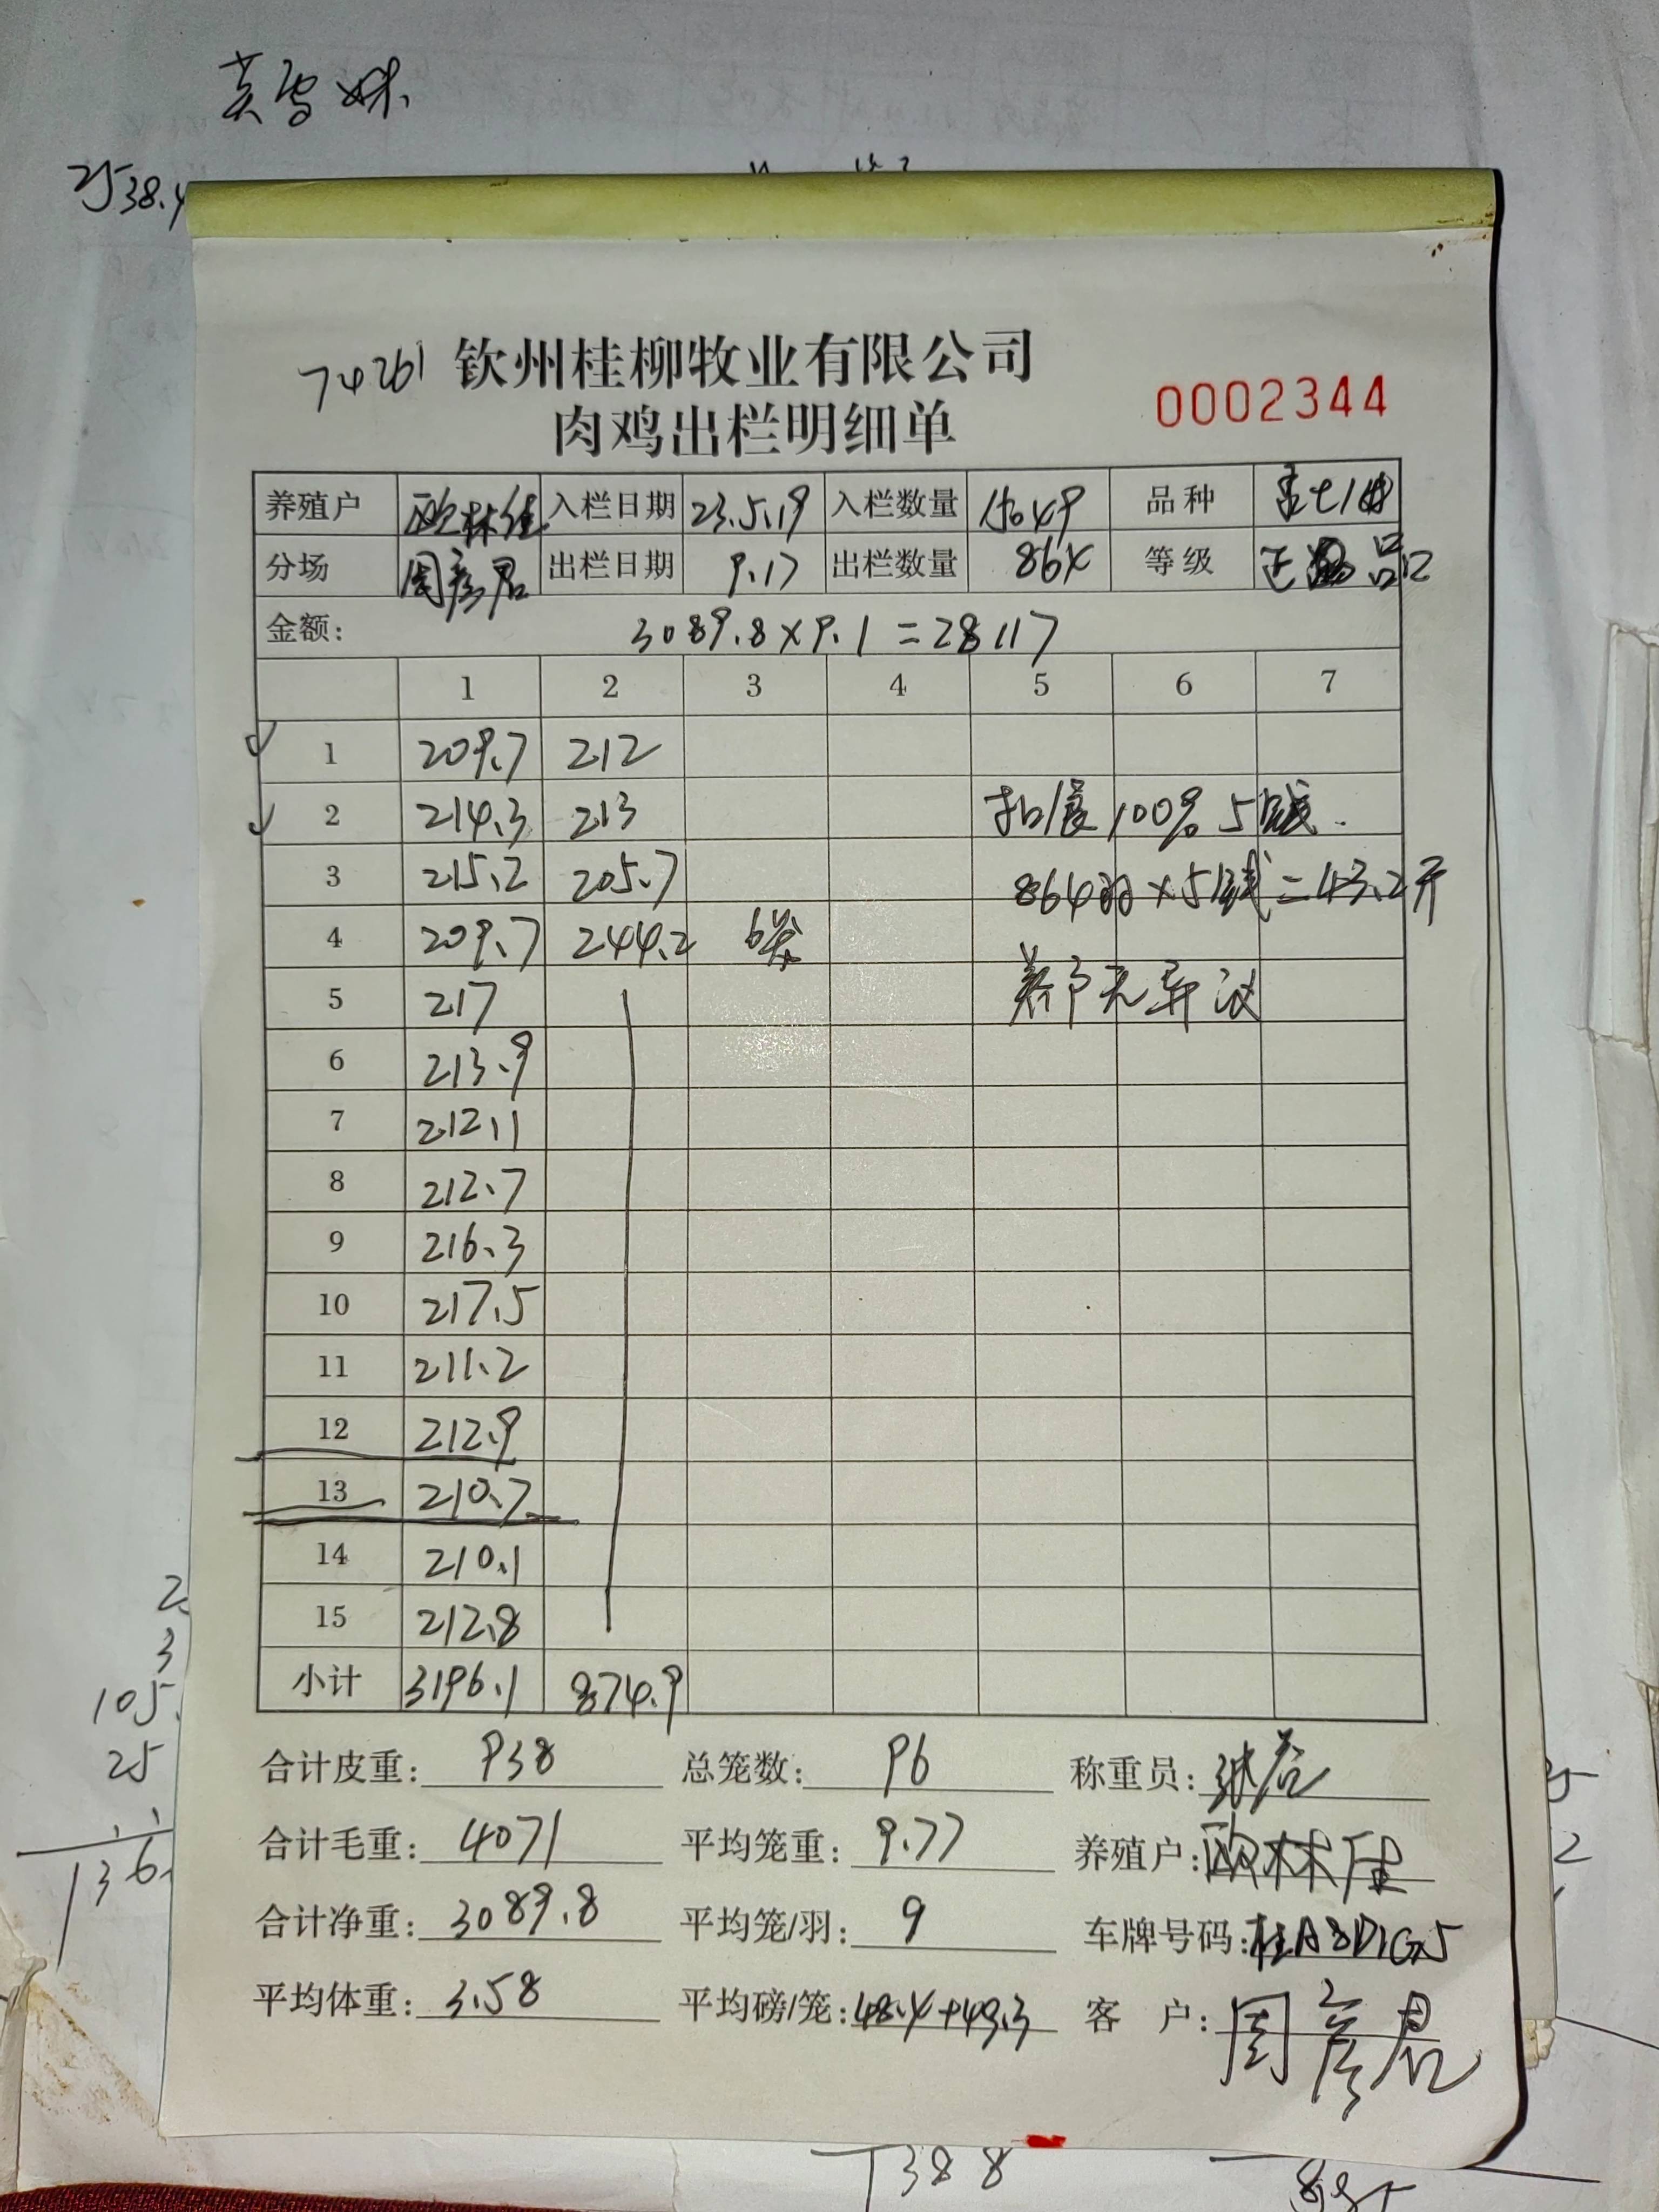 黄雪妹
2538.4
74261 钦州桂柳牧业有限公司
肉鸡出栏明细单 0002344
养殖户 欧林佳 入栏日期 23.5.19 入栏数量 品种
分场 周彦君 出栏日期 9.17 出栏数量 864 等级 正品
金额: 3089.8×9.1=28117
1 2 3 4 5 6 7
1 209.7 212
2 214.3 213 扣/羽 100% 5钱.
3 215.2 205.7 864羽×5钱=43.2斤
4 209.7 244.2 6笼
5 217 养户无异议
6 213.9
7 212.1
8 212.7
9 216.3
10 217.5
11 211.2
12 212.9
13 210.7
14 210.1
15 212.8
小计 3196.1 874.9
合计皮重: 938 总笼数: 96 称重员:
合计毛重: 4071 平均笼重: 9.77 养殖户: 欧林佳
合计净重: 3089.8 平均笼/羽: 9 车牌号码: 桂A3D1G5
平均体重: 3.58 平均磅/笼: 48.4+49.3 客户: 周彦君
105.
25
136.
1388